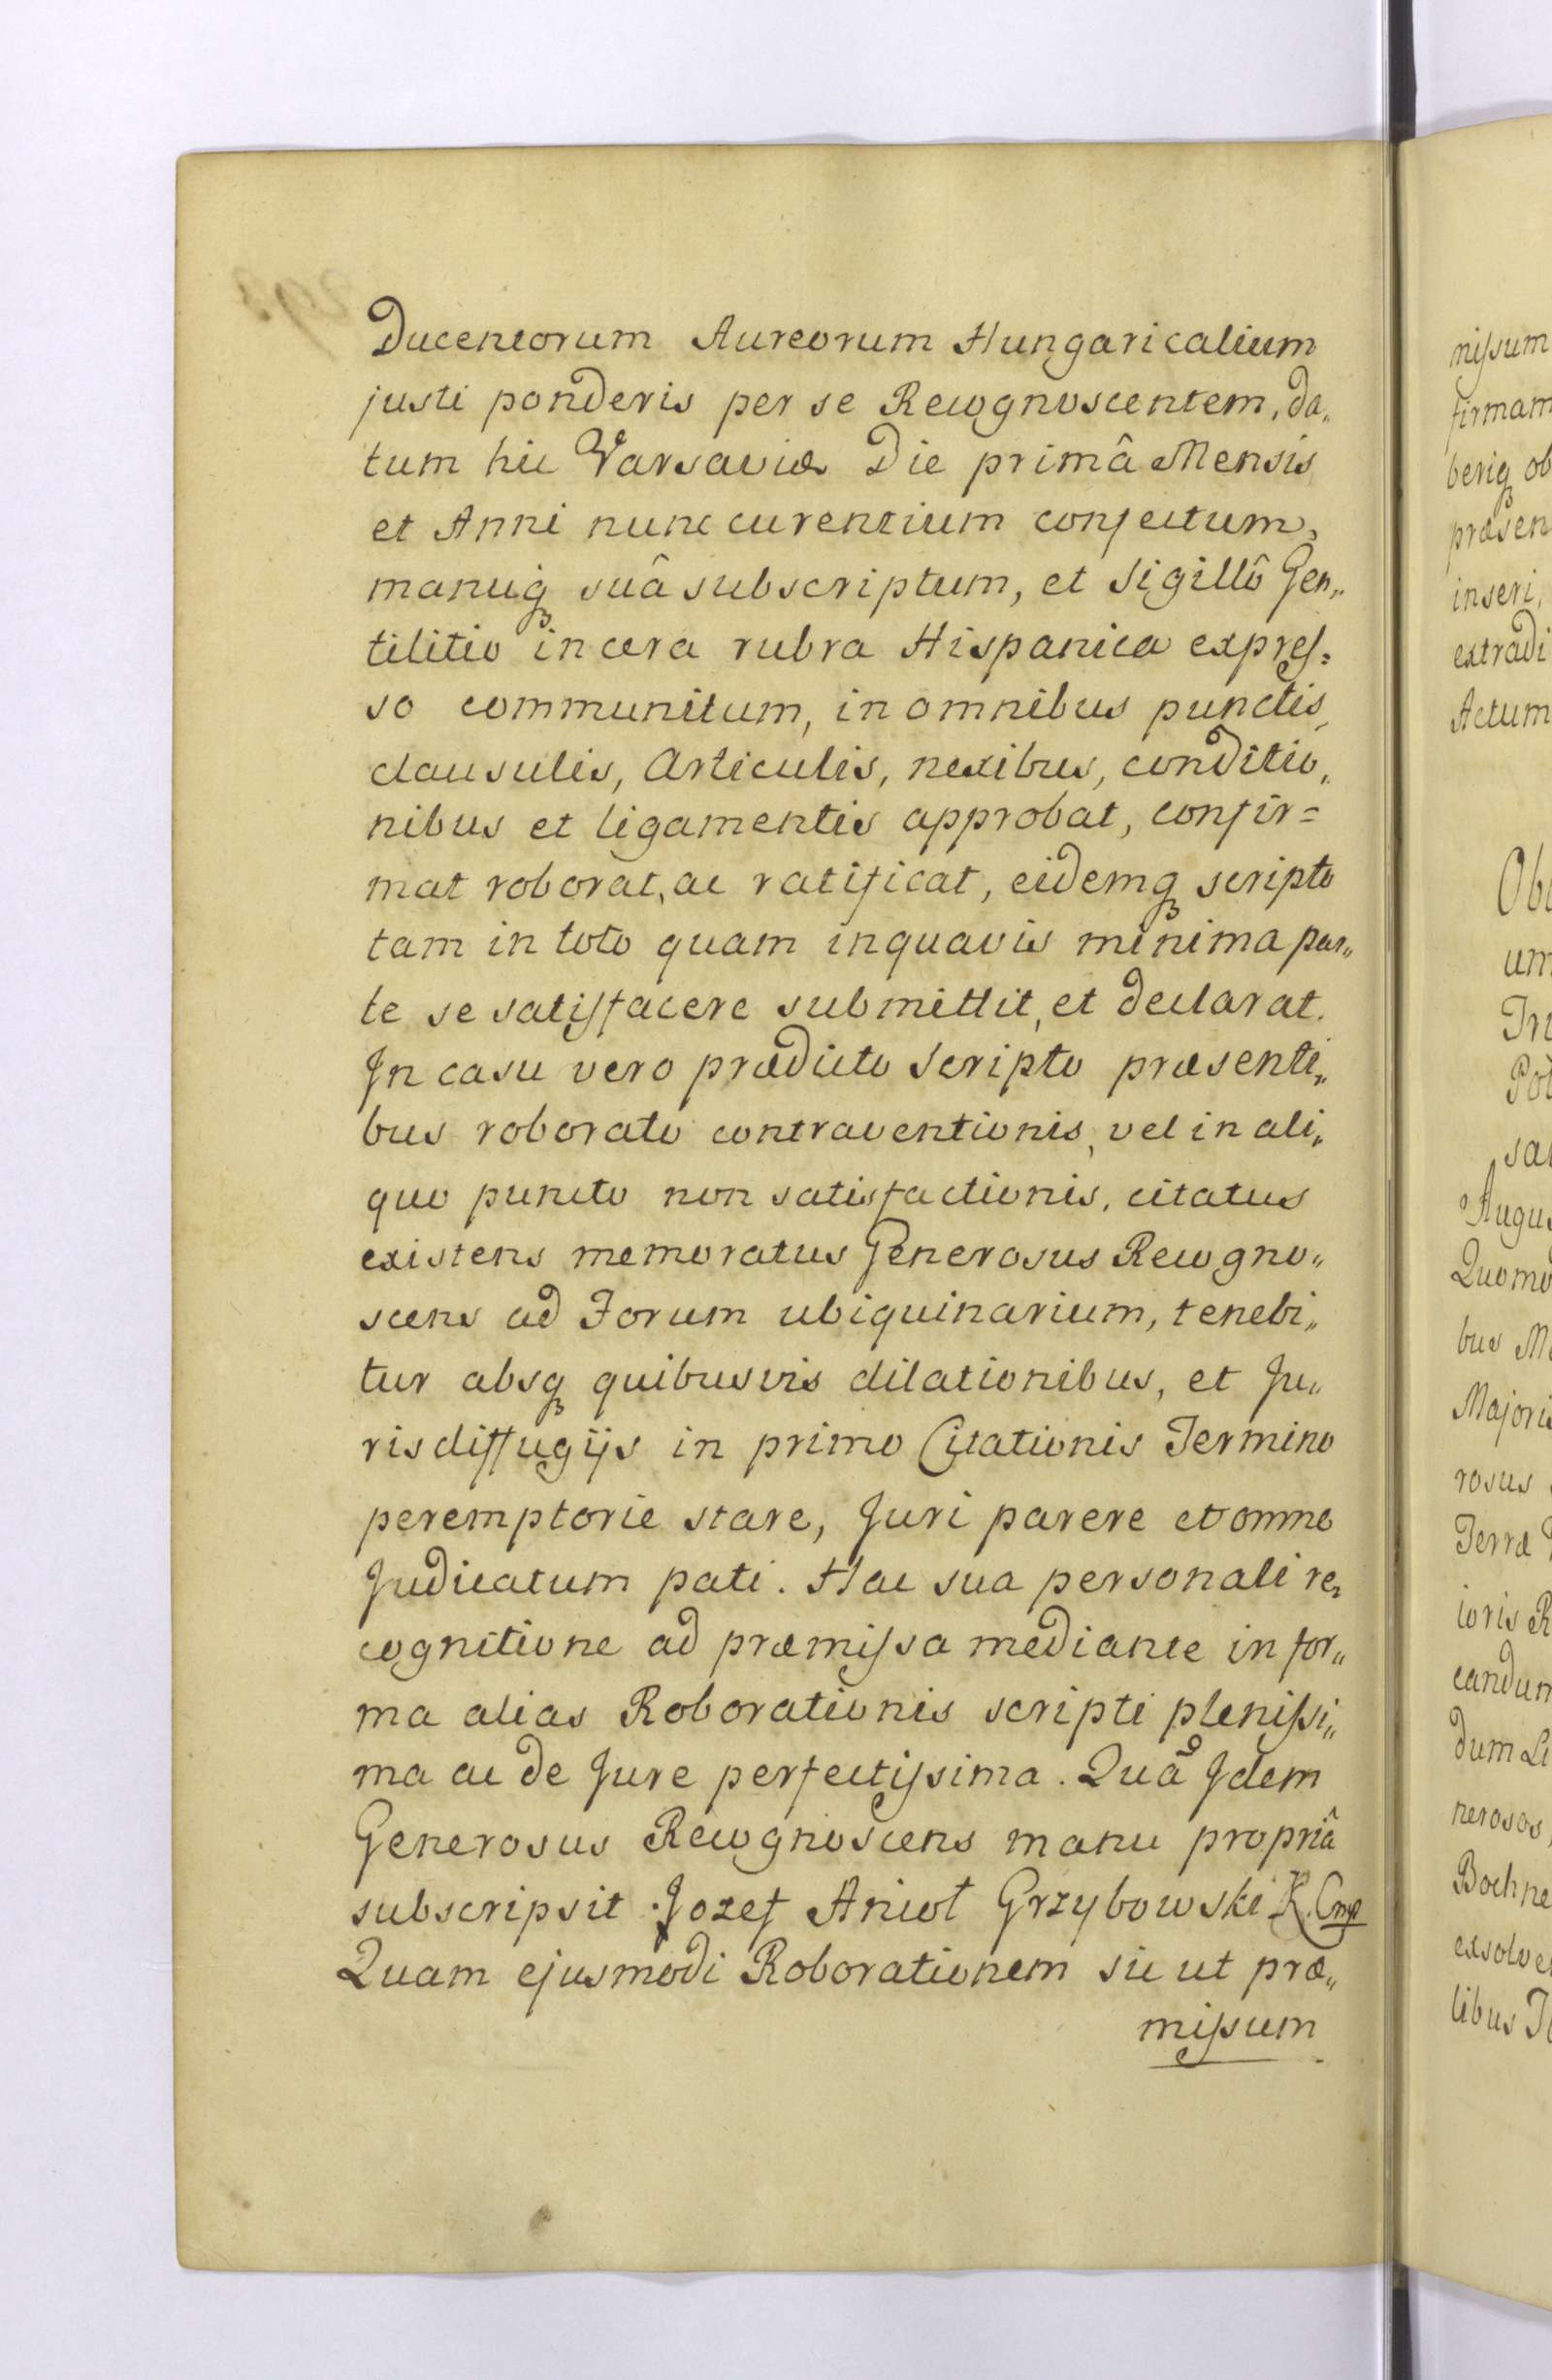 Ducentorum Aureorum Hungaricalium
justi ponderis per se Recognoscentem, da„
tum hic Varsaviæ Die primâ Mensis
et Anni nunc curentium confectum,
manuq́ suâ subscriptum, et Sigillô Gen„
tilitio in cera rubra Hispanica expreſ=
so communitum, in omnibus punctis,
clausulis, Articulis, nexibus, conditio„
nibus et ligamentis approbat, confir=
mat roborat, ac ratificat, eidemq scripto
tam in toto quam in quavis minima par„
te se satisfacere submittit, et declarat.
In casu vero prædicto Scripto præsenti„
bus roborato contraventionis, vel in ali„
quo puncto non satisfactionis, citatus
existens memoratus Generosus Recogno„
scens ad Forum ubiquinarium, tenebi„
tur absq quibusvis dilationibus, et Ju„
ris diffugijs in primo Citationis Termino
peremptorie stare, Juri parere et omne
Judicatum pati. Hac sua personali re„
cognitione ad præmiſsa mediante in for„
ma alias Roborationis scripti pleniſsi„
ma ac de Jure perfectiſsima. Quã Idem
Generosus Recognoscens manu propriâ
subscripsit Jozef Anioł Grzybowski K. C mp
Quam ejusmodi Roborationem sic ut præ„
miſsum
miſsum
firmam
beriq ob
præsen
inseri,
extradi
Actum
um
Augus
Quomo
bus
Majoris
rosus
Terræ
ioris R
candum
dum
nerosos,
Bochne
exsolve
libus